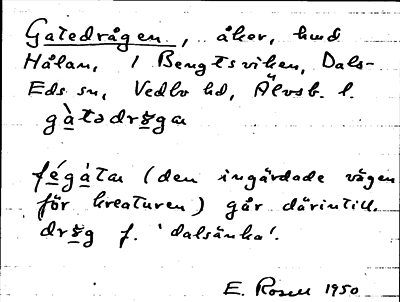 Gatedrågen, åker, hmd
Hålan, 1 Bengtsviken, Dals-
Eds sn, Vedbo hd, Älvsb. l.
gàtədrɤgα
fégátα (den ingärdade vägen
för kreaturen) går därintill.
drɤg f. 'dalsänka'.
E. Rosell 1950